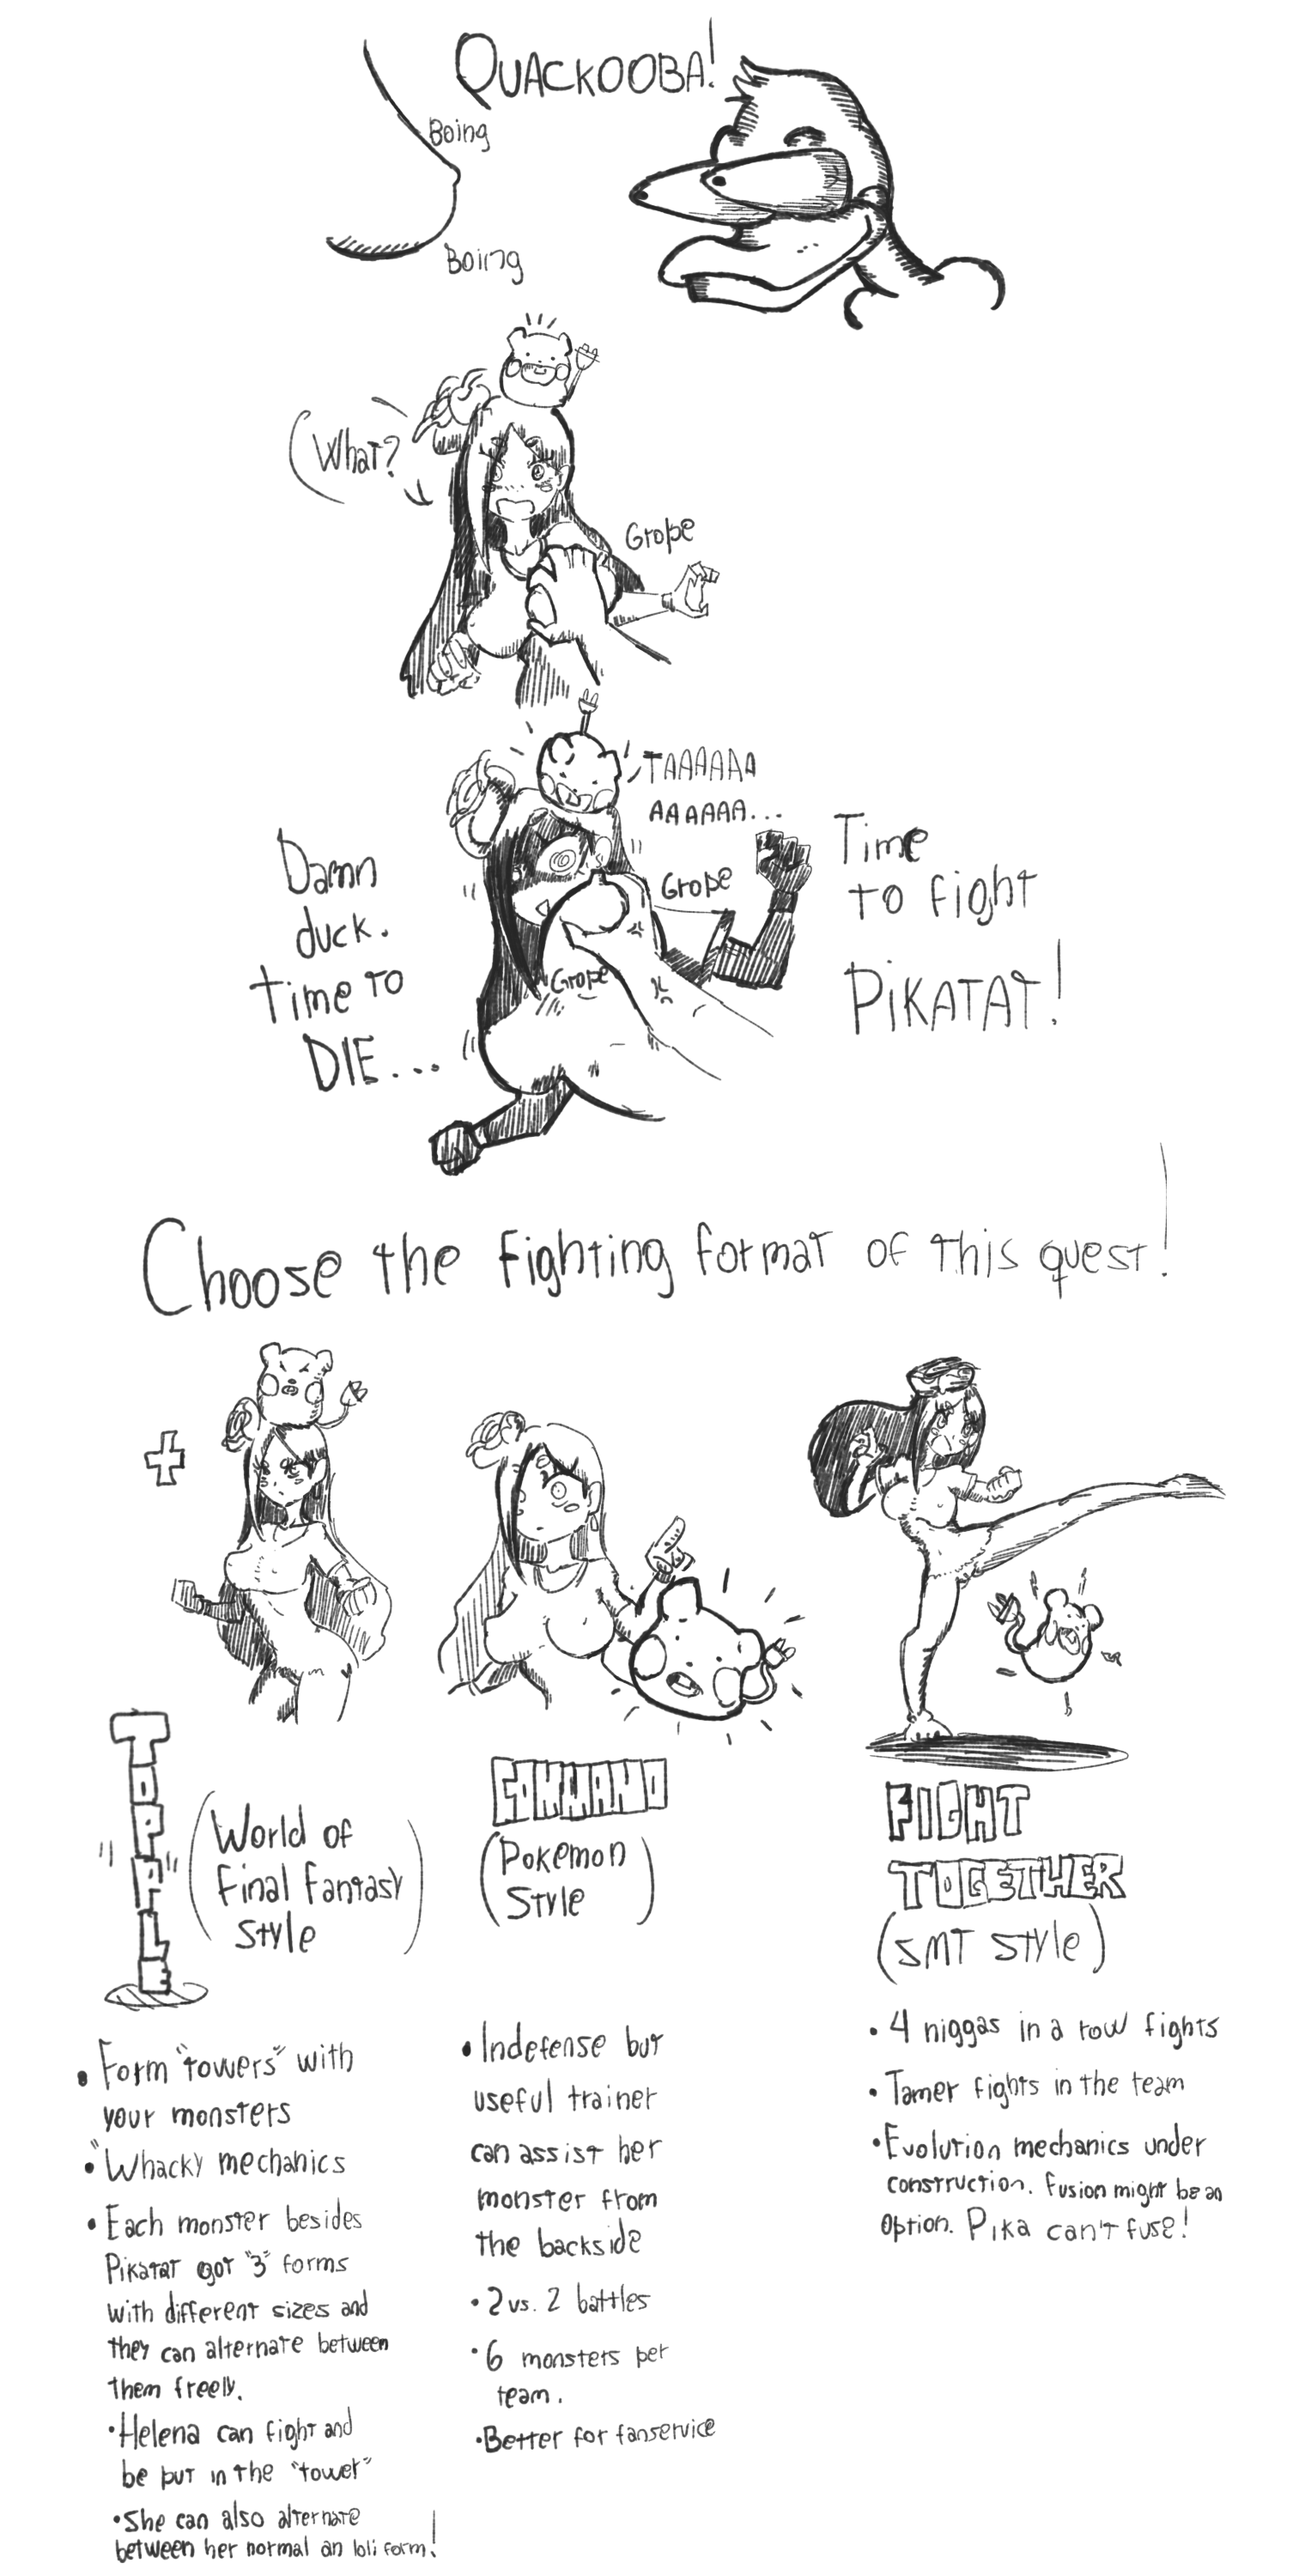 QUACKOOBA!
Boing
Boing
What?
Grope
TAAAAAA
AAAAAA...
Damn
duck.
time to
DIE...
Grope
Grope
Time
to fight
PiKATAT!
Choose the fighting format of this quest!
TOPPLE
(World of
Final Fantasy
style)
• Form "towers" with
your monsters
• "Whacky mechanics
• Each monster besides
Pikatat got "3" forms
with different sizes and
they can alternate between
them freely.
• Helena can fight and
be put in the "tower"
• She can also alternate
between her normal an loli form!
COMMAND
(Pokemon
Style)
• Indefense but
useful trainer
can assist her
monster from
the backside
• 2 vs. 2 battles
• 6 monsters per
team.
• Better for fanservice
FIGHT
TOGETHER
(SMT Style)
• 4 niggas in a row fights
• Tamer fights in the team
• Evolution mechanics under
construction. Fusion might be an
option. Pika can't fuse!